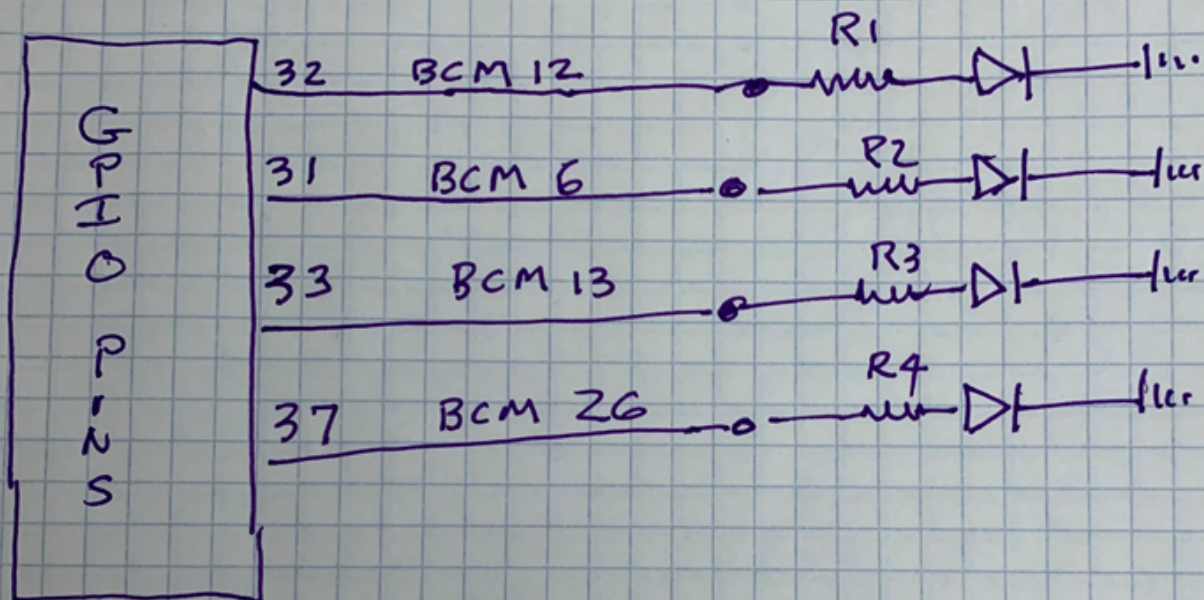 GPIO PINS
32 BCM 12 R1
31 BCM 6 R2
33 BCM 13 R3
37 BCM 26 R4